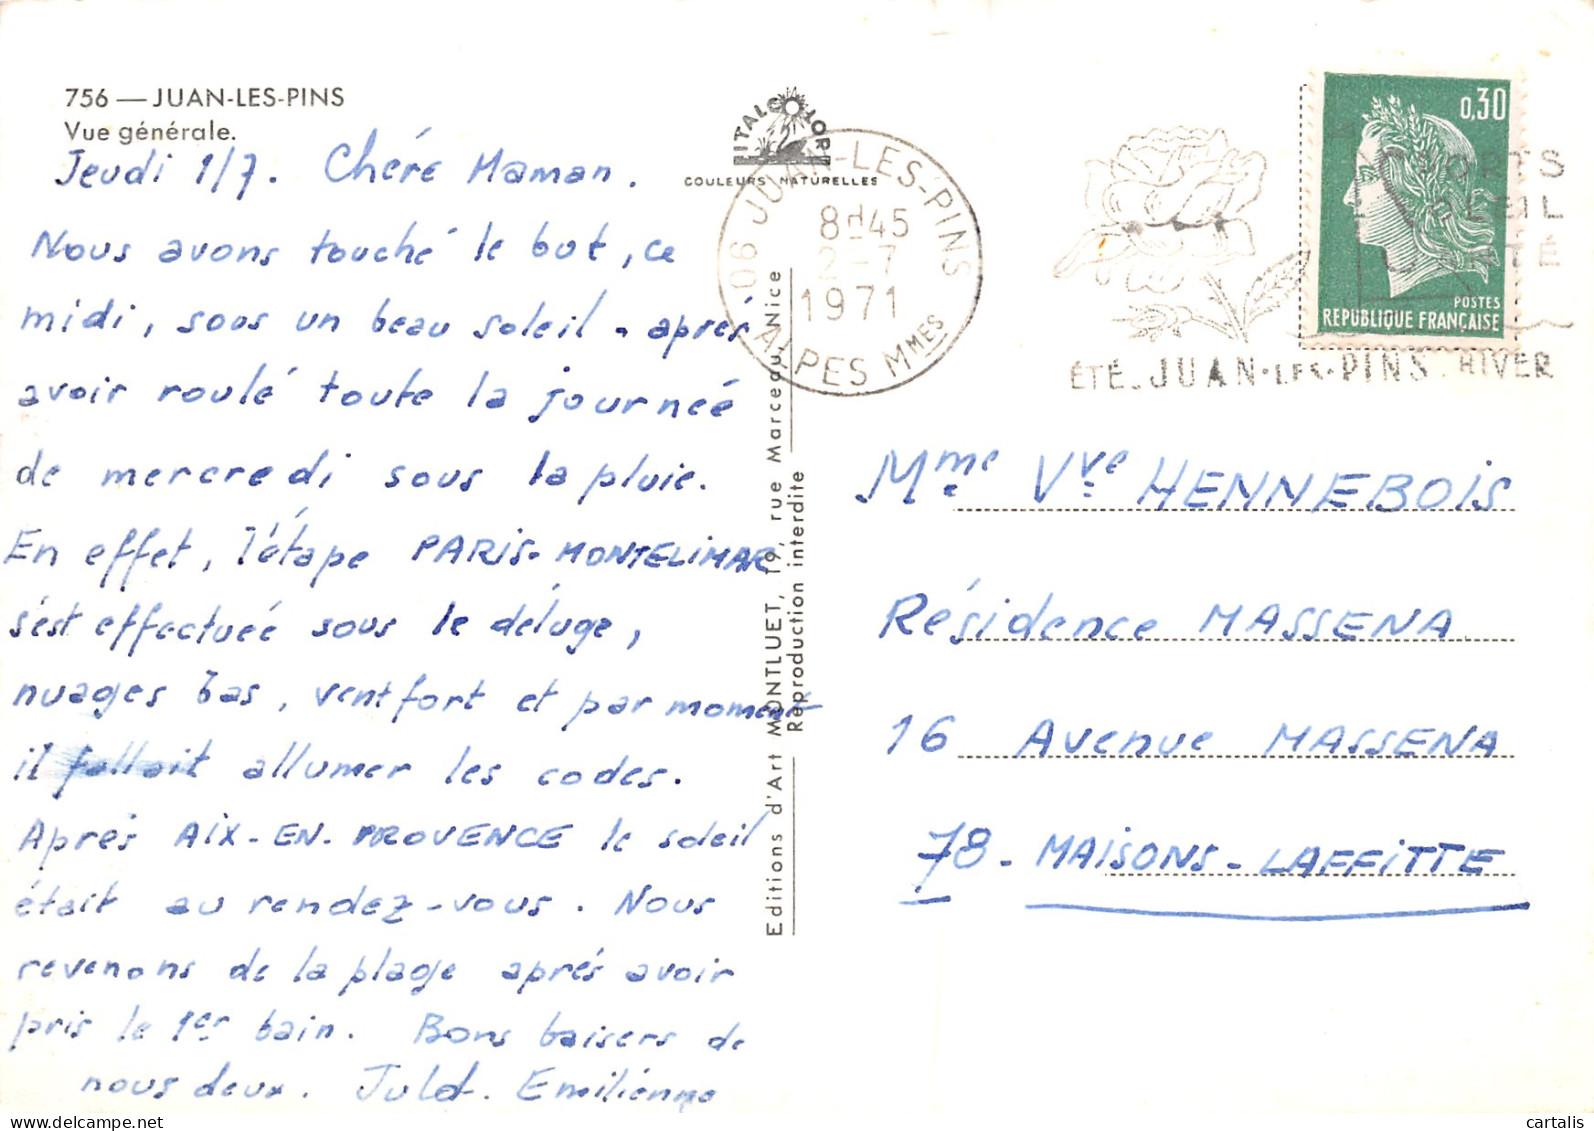 756 — JUAN-LES-PINS
Vue générale.
Jeudi 1/7. Chére Maman.
Nous avons touché le but, ce
midi, sous un beau soleil - aprés
avoir roulé toute la journeé
de mercredi sous la pluie.
En effet, l'étape PARIS-MONTELIMAR
s'est effectueé sous le déluge,
nuages bas, vent fort et par moment
il fallait allumer les codes.
Aprés AIX-EN-PROVENCE le soleil
était au rendez-vous. Nous
revenons de la plage aprés avoir
pris le 1er bain. Bons baisers de
nous deux. Emiliénne
ITALCOLOR
COULEURS NATURELLES
06 JUAN-LES-PINS
8H45
2-7
1971
ALPES Mmes
Editions d'Art MONTLUET, 19, rue Marceau, Nice
Reproduction interdite
0,30
POSTES
REPUBLIQUE FRANÇAISE
ÉTÉ. JUAN-LES-PINS. HIVER
Mme Vve HENNEBOIS
Résidence MASSENA
16 Avenue MASSENA
78 - MAISONS-LAFFITTE
cartalis